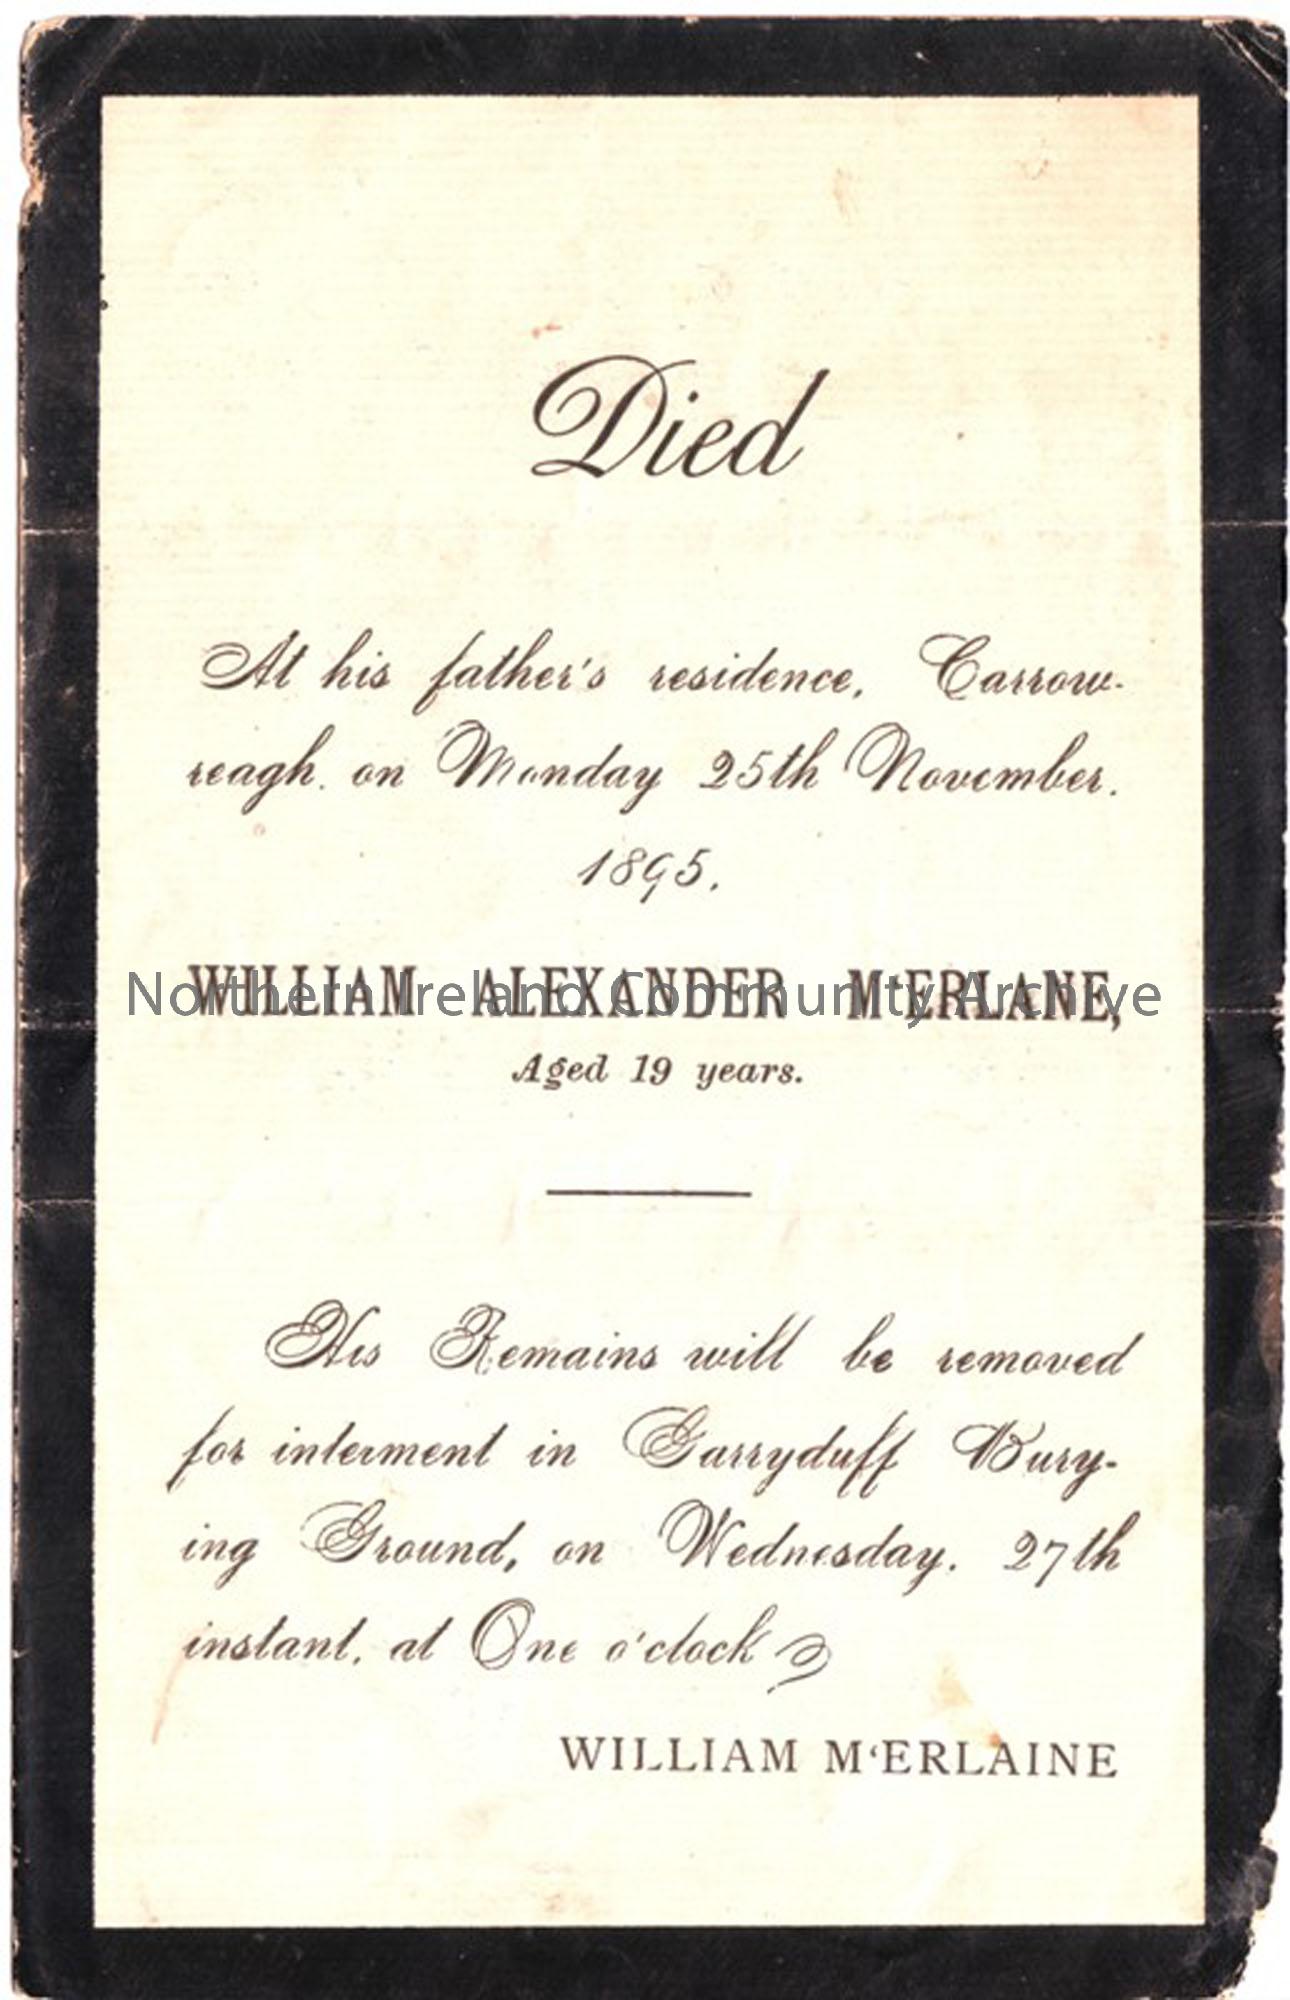 Died
At his father's residence, Carrow-
reagh. on Monday 25th November.
1895.
WILLIAM ALEXANDER M'ERLANE,
Northern Ireland Community Archive
Aged 19 years.
His Remains will be removed
for interment in Garryduff Bury-
ing Ground, on Wednesday. 27th
instant, at One o'clock
WILLIAM M‘ERLAINE